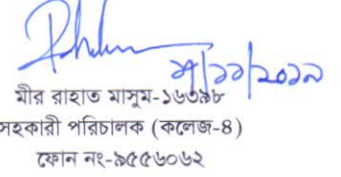 ২৭/১১/২০১৯
মীর রাহাত মাসুম-১৬৩৯৮
সহকারী পরিচালক (কলেজ-৪)
ফোন নং-৯৫৫৬০৬২